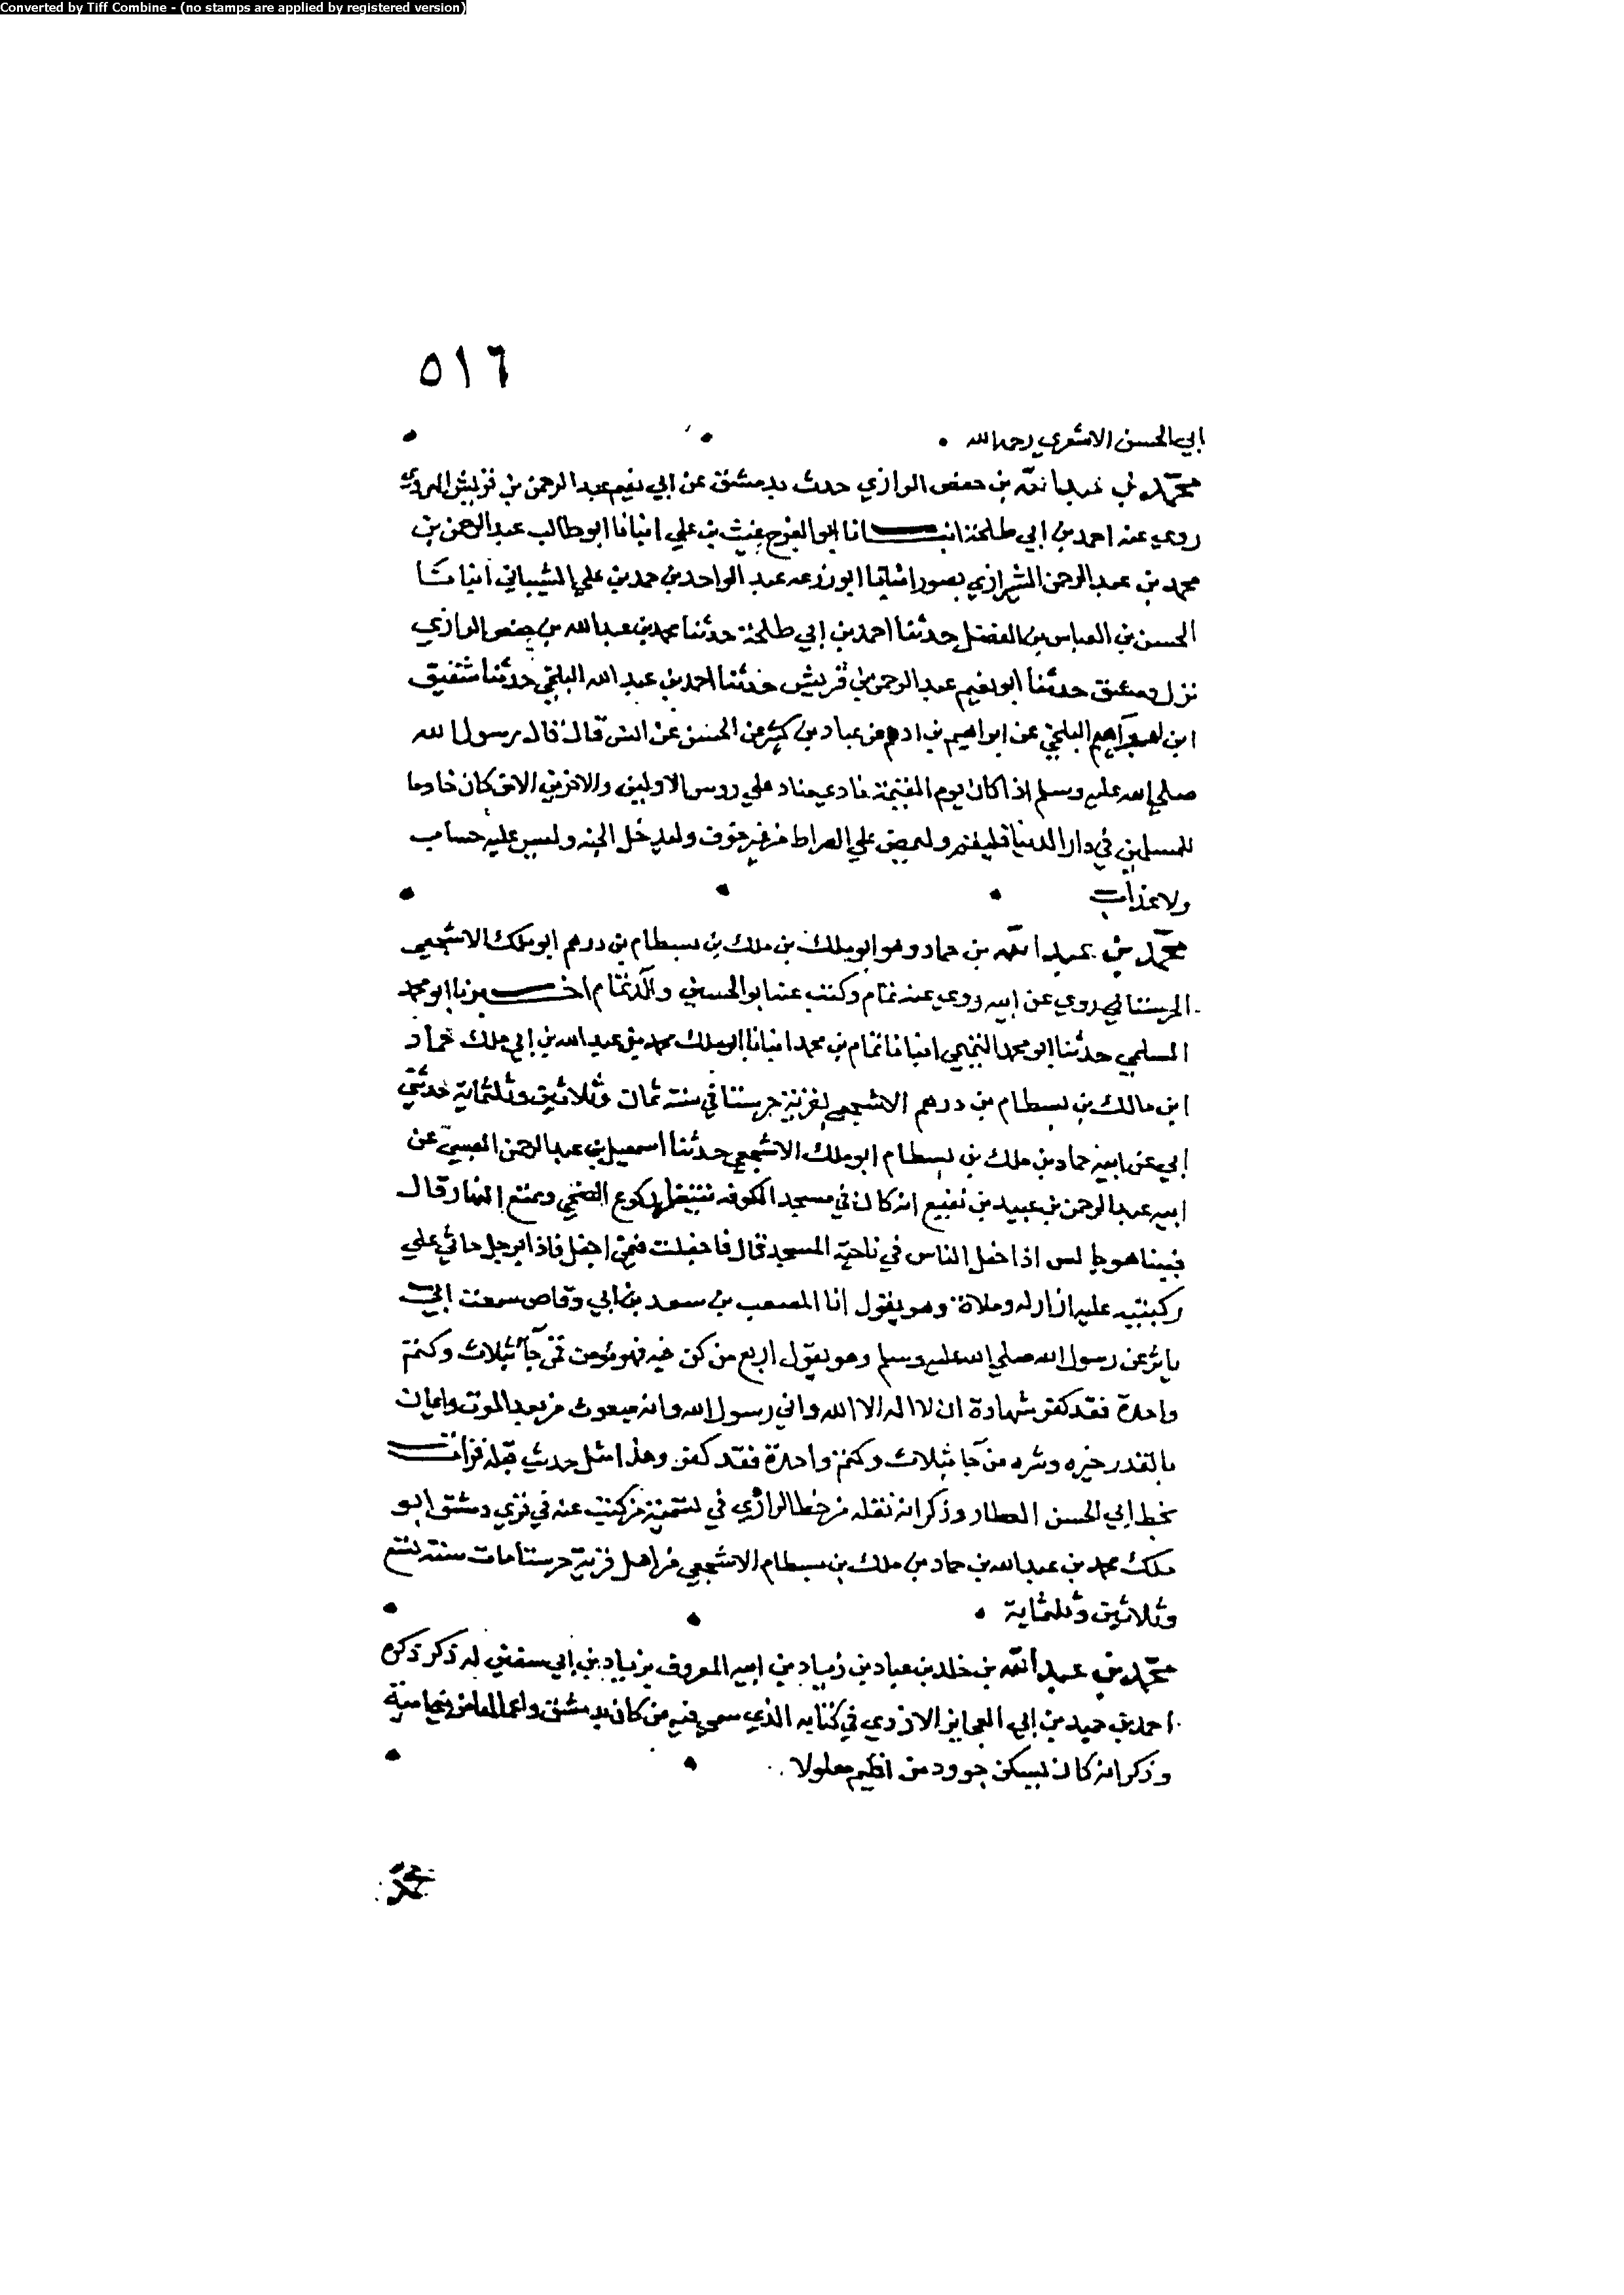 Converted by Tiff Combine - (no stamps are applied by registered version)
٥١٦
ابي الحسن الاشعري رحمه الله
محمد بن عبد الله بن حفص الرازي حدث بدمشق عن ابي نعيم عبد الرحمن بن قريش الهروي
روي عنه احمد بن ابي طلحة انبانا ابو الفرج غيث بن علي انبانا ابو طالب عبد الرحمن بن
محمد بن عبد الرحمن الشيرازي بصور انبانا ابو زرعه عبد الواحد بن حمد بن علي الشيباني انبانا
الحسن بن العباس بن الفضل حدثنا احمد بن ابي طلحة حدثنا محمد بن عبد الله بن حفص الرازي
نزل دمشق حدثنا ابو نعيم عبد الرحمن بن قريش حدثنا احمد بن عبد الله البلخي حدثنا شقيق
ابن ابراهيم البلخي عن ابراهيم بن ادهم عن عباد بن كثير عن الحسن عن انس قال قال رسول الله
صلي الله عليه وسلم اذا كان يوم القيمة نادي مناد علي روس الاولين والاخرين الا من كان خادما
للمسلمين في دار الدنيا فليقم وليمض علي الصراط من غير خوف وليدخل الجنه وليس عليه حساب
ولا عذاب
محمد بن عبد الله بن حماد وهو ابو ملك بن ملك بن بسطام بن درهم ابو ملك الاشجعي
الحرستاني روي عن ابيه روي عنه تمام وكتب عنه ابو الحسين والد تمام اخبرنا ابو محمد
السلمي حدثنا ابو محمد التميمي انبانا تمام بن محمد انبانا ابو ملك محمد بن عبد الله بن ابي ملك حماد
ابن مالك بن بسطام بن درهم الاشجعي بقرية حرستا في سنة ثمان وثلاثين وثلثماية حدثني
ابي عن ابيه حماد بن ملك بن بسطام ابو ملك الاشجعي حدثنا اسمعيل بن عبد الرحمن العبسي عن
ابيه عبد الرحمن بن عبيد بن نفيع انه كان في مسجد الكوفه ينتظر ركوع الضحي وتمتع النهار قال
فبينا هو جالس اذ اجفل الناس في ناحية المسجد قال فاجفلت فيمن اجفل فاذا برجل جاثي علي
ركبتيه عليه ازار له وملاة وهو يقول انا المصعب بن سعد بن ابي وقاص سمعت ابي
ياثر عن رسول الله صلي الله عليه وسلم وهو يقول اربع من كن فيه فهو مومن فمن جا بثلاث وكتم
واحدة فقد كفر شهادة ان لا اله الا الله واني رسول الله وانه مبعوث من بعد الموت وايمان
بالقدر خيره وشره من جا بثلاث وكتم واحدة فقد كفر وهذا مثل حديث قبله قرات
بخط ابي الحسن العطار وذكر انه نقله من خط الرازي في تسمية من كتب عنه في قري دمشق ابو
ملك محمد بن عبد الله بن حماد بن ملك بن بسطام الاشجعي من اهل قرية حرستا مات سنة تسع
وثلاثين وثلثماية
محمد بن عبد الله بن خلد بن عباد بن زياد بن ابيه المعروف بزياد بن ابي سفين له ذكر ذكره
احمد بن حميد بن ابي العجايز الازدي في كتابه الذي سمي فيه من كان بدمشق واعمالها من بني امية
وذكر انه كان يسكن جرود من اقليم معلولا
محمد